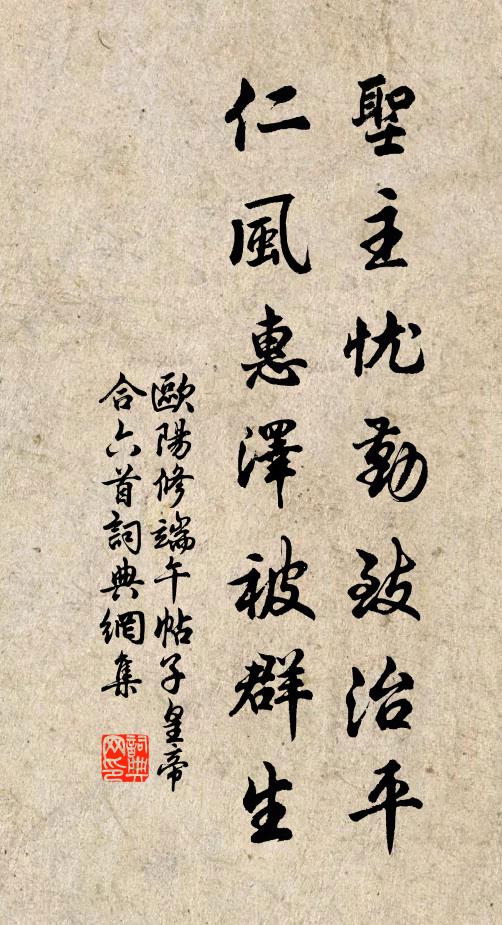 聖主忧勤致治平
仁風惠澤被群生
歐陽修端午帖子皇帝
合六首詞典網集
詞典网印